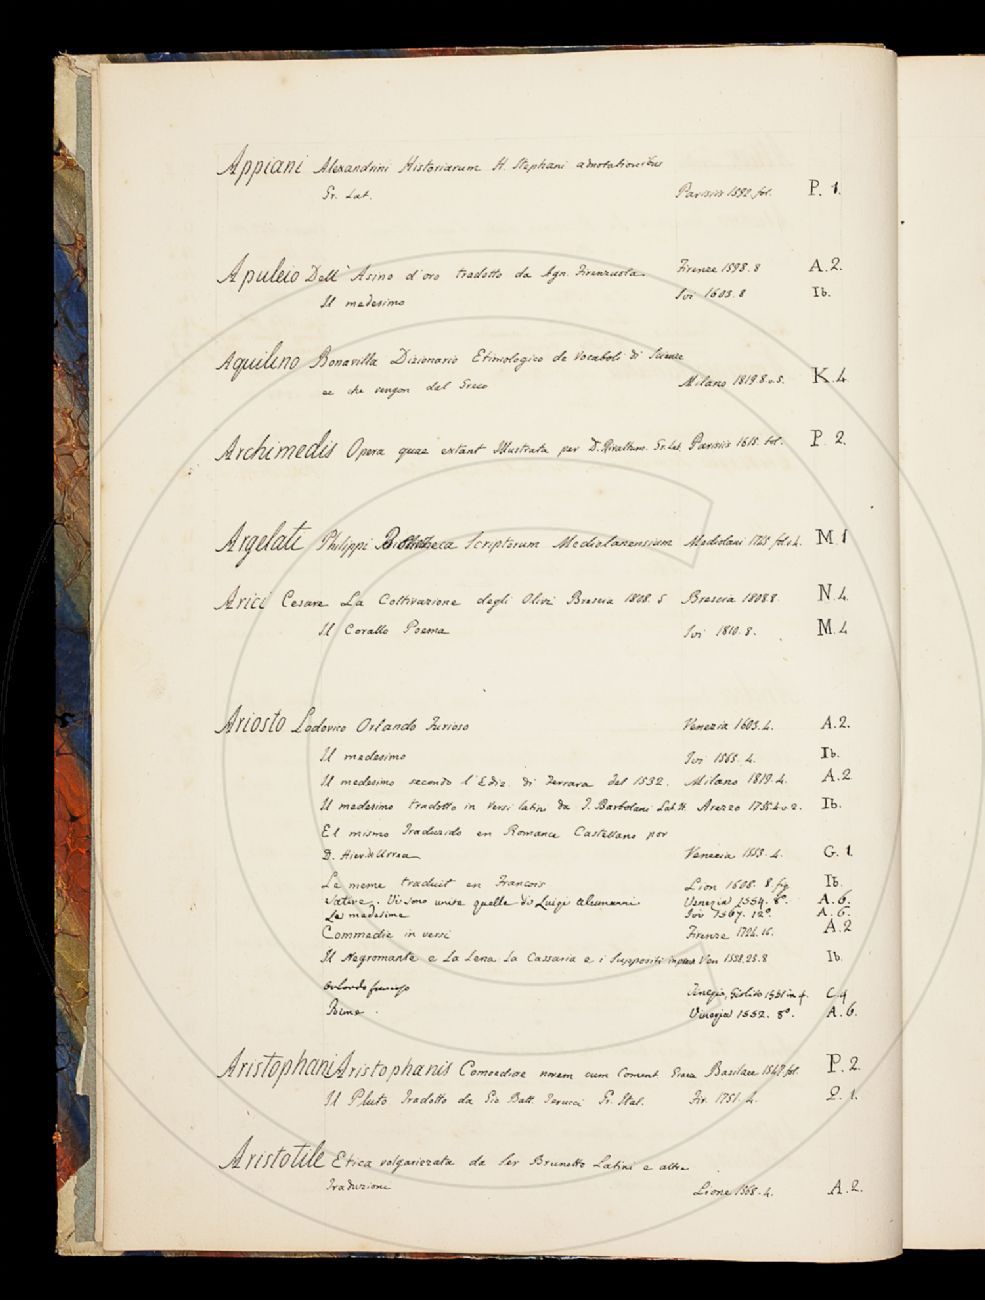 Appiani Alexandrini Historiarum H. Stephani adnotationibus
Gr. Lat. Parisiis 1592. fol. P. 1.
Apuleio Dell' Asino d'oro tradotto da Agn. Firenzuola. Firenze 1598. 8 A. 2.
Il medesimo Ivi 1603. 8 Ib.
Aquilino Bonavilla Dizionario Etimologico de Vocaboli di Scienze
ec che vengon dal Greco Milano 1819. 8. v. 5. K. 4
Archimedis Opera quae extant Illustrata per D. Rivaltum. Gr. Lat. Parisiis 1615. fol. P. 2.
Argelati Philippi Bibliotheca Scriptorum Mediolanensium Mediolani 1745 fol. v. 4. M 1
Arici Cesare La Coltivazione degli Olivi Brescia 1808. 8 Brescia 1808 8. N. 4
Il Corallo Poema Ivi 1810. 8. M. 4
Ariosto Lodovico Orlando Furioso Venezia 1603. 4. A. 2.
Il medesimo Ivi 1565. 4. Ib.
Il medesimo secondo l'Ediz. di Ferrara del 1532. Milano 1819. 4. A. 2
Il medesimo tradotto in versi latini da T. Barbolani Lat. It. Arezzo v. 2. Ib.
El mismo Traduzido en Romance Castellano por
D. Hier. de Urrea Venecia 1553. 4. G. 1.
Le meme traduit en Francois Lion 1608. 8. fig. Ib.
Satire. Vi sono unite quelle di Luigi Alamanni Venezia 1554. 8º. A. 6.
Le medesime Ivi 1567. 12º. A. 6.
Commedie in versi Firenze 1724. 16. A. 2
Il Negromante e La Lena La Cassaria e i Suppositi in prosa Ven 1538. 25. 8 Ib.
Orlando furioso Vinegia, Giolito 1551 in 4. C. 4
Rime. Vinegia 1552. 8º. A. 6.
Aristophani Aristophanis Comoediae novem cum Coment. Graca Basileae 1547 fol. P. 2.
Il Pluto Tradotto da Gio Batt. Terucci Gr. Ital. Fir. 1751. 4. Q. 1.
Aristotile Etica volgarizzata da Ser Brunetto Latini e altre
Traduzioni Lione 1568. 4. A. 2.